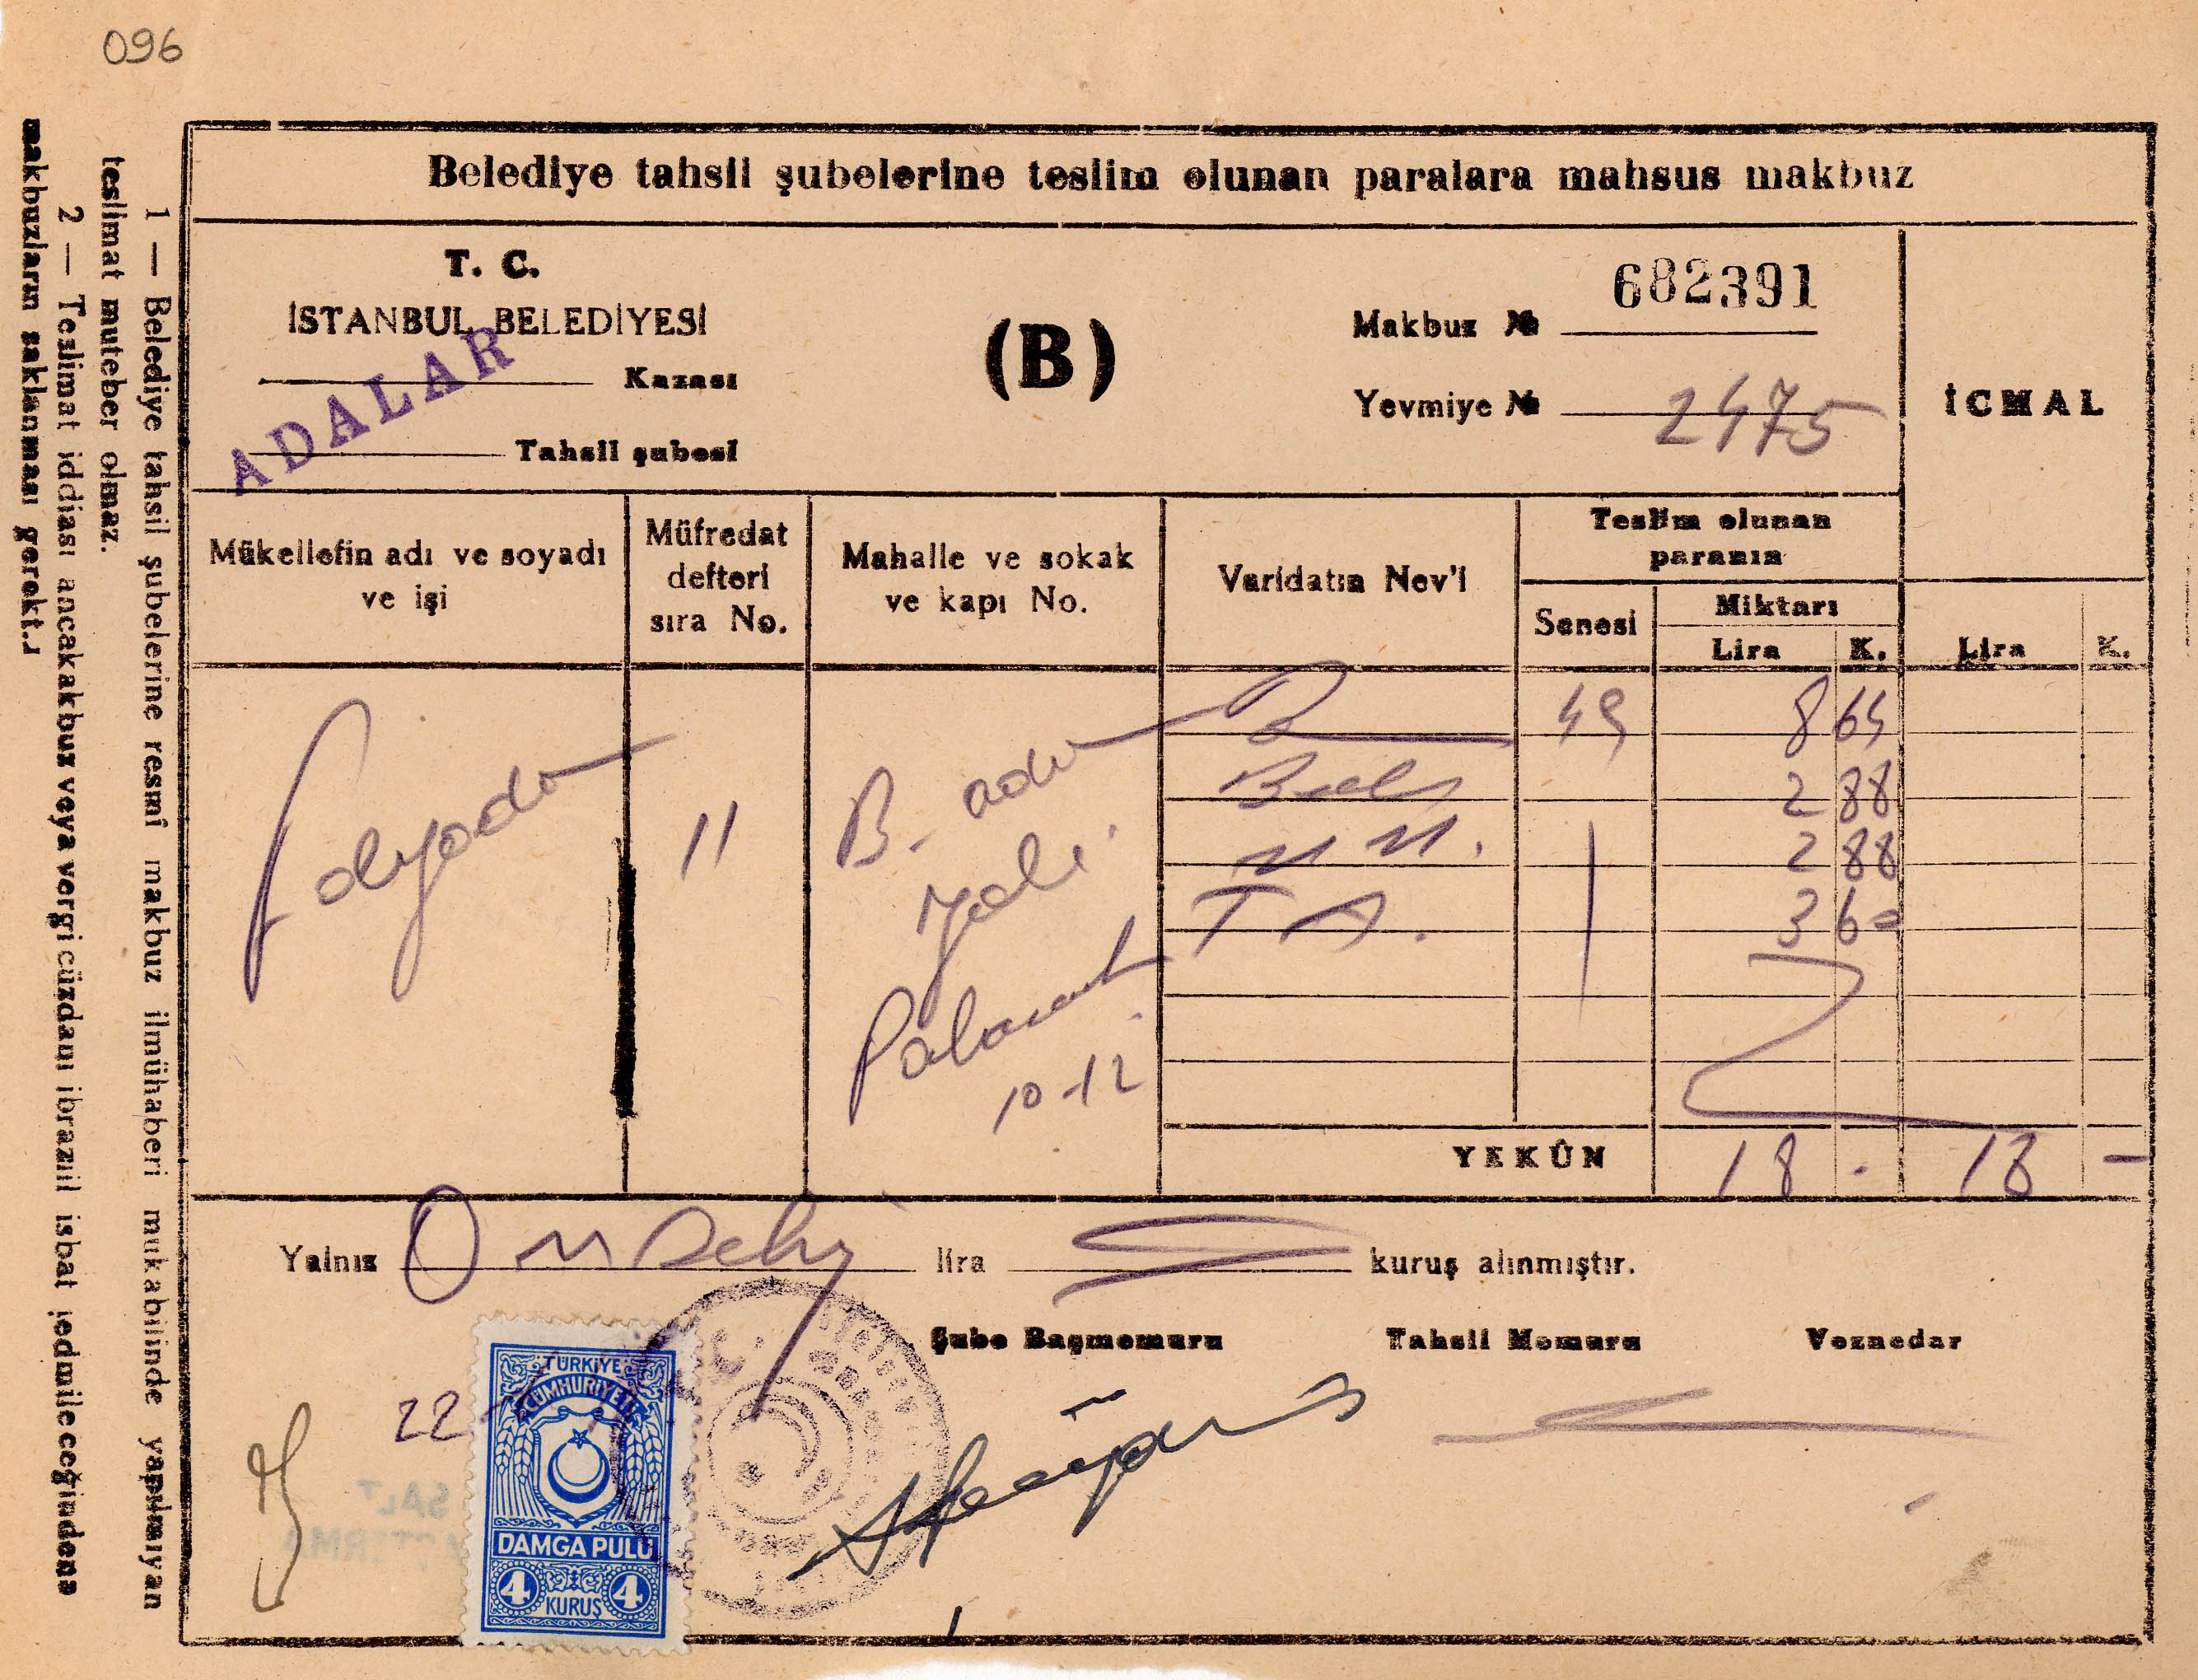 096
Belediye tahsil şubelerine teslim olunan paralara mahsus makbuz
T. C.
İSTANBUL BELEDİYESİ
Kazası
ADALAR
Tahsil şubesi
(B)
Makbuz № 682391
Yevmiye № 2475
İCMAL
Mükellefin adı ve soyadı
ve işi
Müfredat
defteri
sıra No.
Mahalle ve sokak
ve kapı No.
Varidatın Nev'i
Teslim olunan
paranın
Senesi
Miktarı
Lira K.
Lira K.
11
B. ada
Yalı
10-12
49 8 64
2 88
2 88
T A. 3 60
YEKÛN 18 . 18 —
Yalnız On Sekiz lira kuruş alınmıştır.
Şube Başmemuru Tahsil Memuru Veznedar
22
TÜRKİYE
CÜMHURİYETİ
DAMGA PULU
4 KURUŞ 4
1 — Belediye tahsil şubelerine resmî makbuz ilmühaberi mukabilinde yapılmıyan
teslimat muteber olmaz.
2 — Teslimat iddiası ancakakbuz veya vergi cüzdanı ibrazıil isbat
makbuzların saklanması